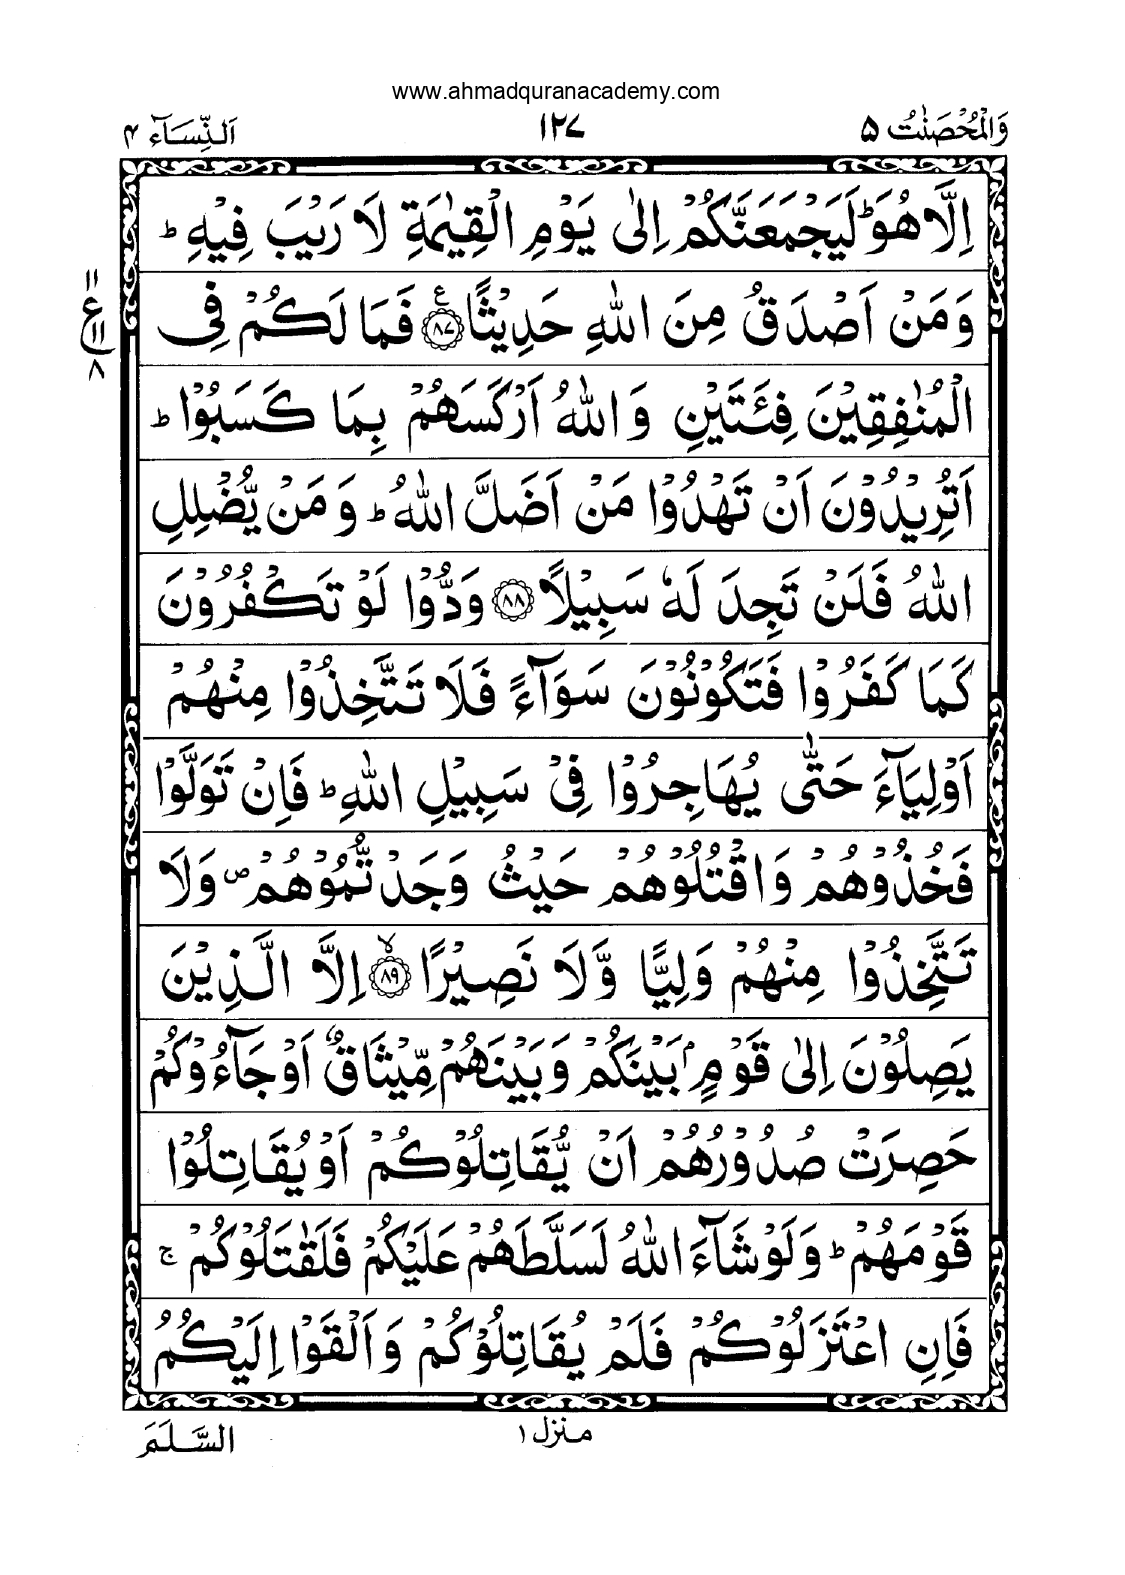 www.ahmadquranacademy.com
وَالْمُحْصَنٰتُ ۵ ۱۲۷ اَلنِّسَآء ۴
اِلَّا هُوَ ؕ لَيَجْمَعَنَّكُمْ اِلٰى يَوْمِ الْقِيٰمَةِ لَا رَيْبَ فِيْهِ ؕ
وَمَنْ اَصْدَقُ مِنَ اللّٰهِ حَدِيْثًا ﴿۸۷﴾ ع فَمَا لَكُمْ فِى
۱۱
ع
۱۱
۸
الْمُنٰفِقِيْنَ فِئَتَيْنِ وَاللّٰهُ اَرْكَسَهُمْ بِمَا كَسَبُوْا ؕ
اَتُرِيْدُوْنَ اَنْ تَهْدُوْا مَنْ اَضَلَّ اللّٰهُ ؕ وَمَنْ يُّضْلِلِ
اللّٰهُ فَلَنْ تَجِدَ لَهٗ سَبِيْلًا ﴿۸۸﴾ وَدُّوْا لَوْ تَكْفُرُوْنَ
كَمَا كَفَرُوْا فَتَكُوْنُوْنَ سَوَآءً فَلَا تَتَّخِذُوْا مِنْهُمْ
اَوْلِيَآءَ حَتّٰى يُهَاجِرُوْا فِىْ سَبِيْلِ اللّٰهِ ؕ فَاِنْ تَوَلَّوْا
فَخُذُوْهُمْ وَاقْتُلُوْهُمْ حَيْثُ وَجَدْتُّمُوْهُمْ ۪ وَلَا
تَتَّخِذُوْا مِنْهُمْ وَلِيًّا وَّلَا نَصِيْرًا ۙ﴿۸۹﴾ اِلَّا الَّذِيْنَ
يَصِلُوْنَ اِلٰى قَوْمٍۭ بَيْنَكُمْ وَبَيْنَهُمْ مِّيْثَاقٌ اَوْ جَآءُوْكُمْ
حَصِرَتْ صُدُوْرُهُمْ اَنْ يُّقَاتِلُوْكُمْ اَوْ يُقَاتِلُوْا
قَوْمَهُمْ ؕ وَلَوْ شَآءَ اللّٰهُ لَسَلَّطَهُمْ عَلَيْكُمْ فَلَقٰتَلُوْكُمْ ۚ
فَاِنِ اعْتَزَلُوْكُمْ فَلَمْ يُقَاتِلُوْكُمْ وَاَلْقَوْا اِلَيْكُمُ
منزل ۱
السَّلَمَ